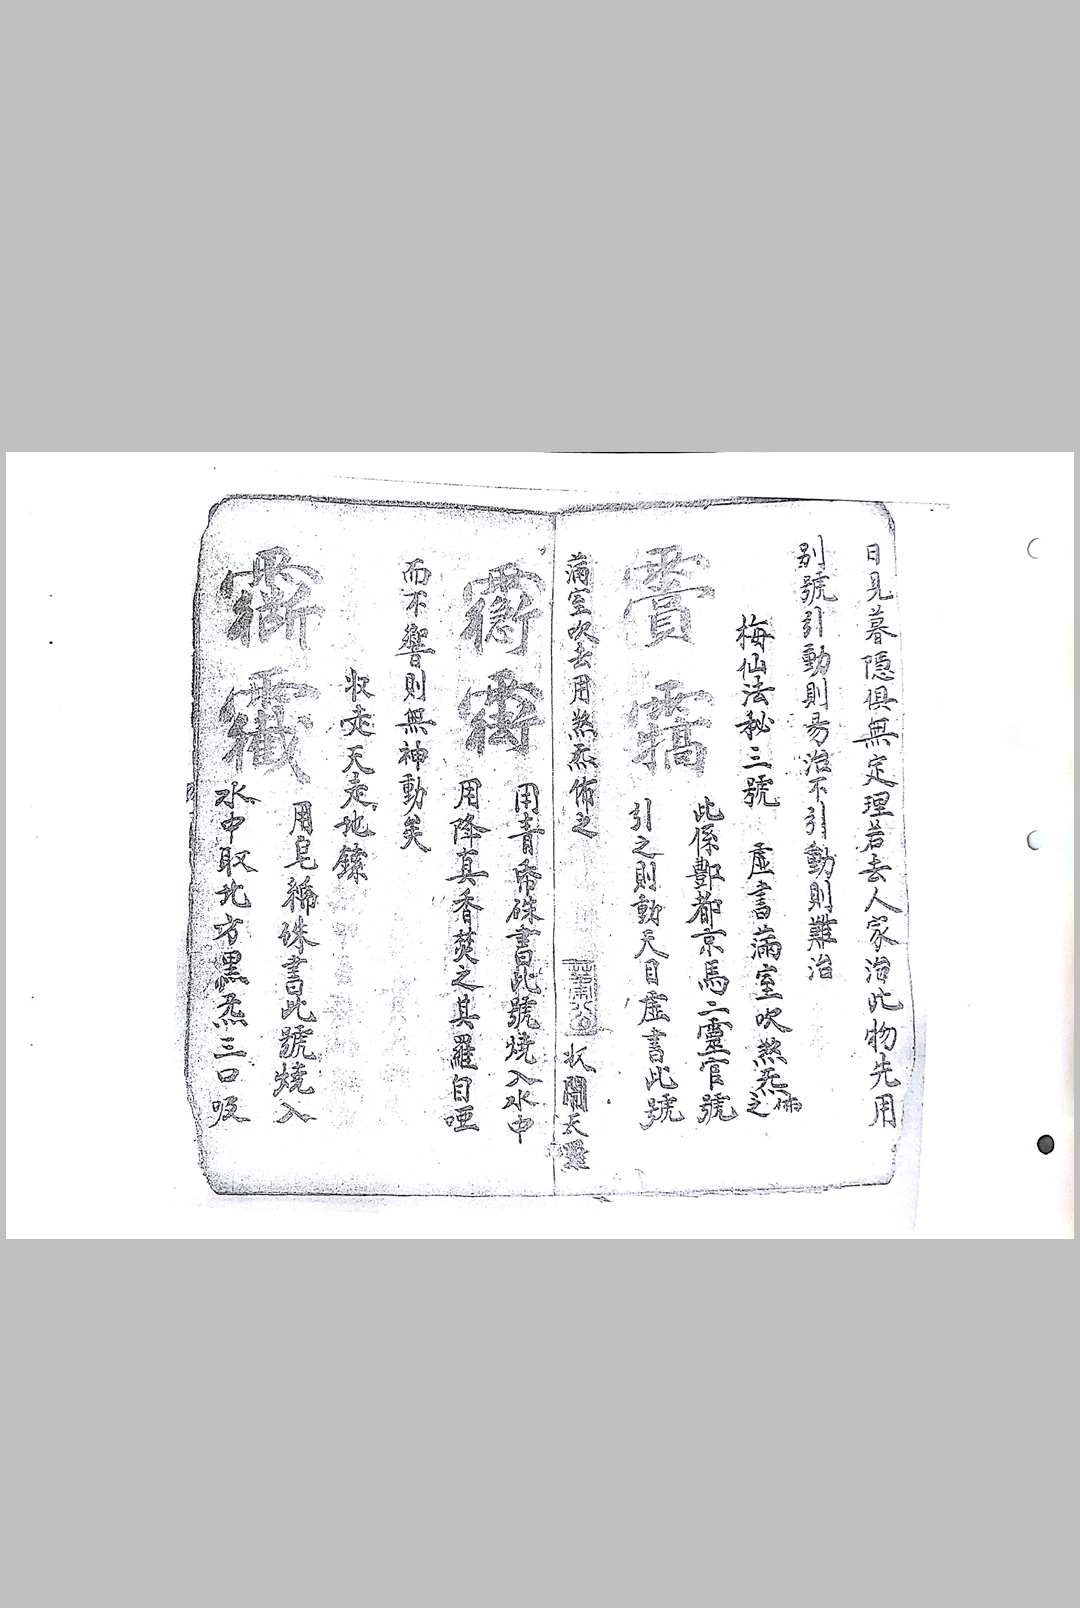 日見暮隱俱無定理若去人家治此物先用
別號引動則易治不引動則難治
梅仙法秘三號 虛書滿室吹煞炁佈之
此係酆都京馬二靈官號
引之則動天目虛書此號
滿室吹去用煞炁佈之
收鬧天羅
用青帋硃書此號燒入水中
用降真香焚之其羅自啞
而不響則無神動矣
收走天走地鎍
用皂 硃書此號燒入
水中取北方黑炁三口吸